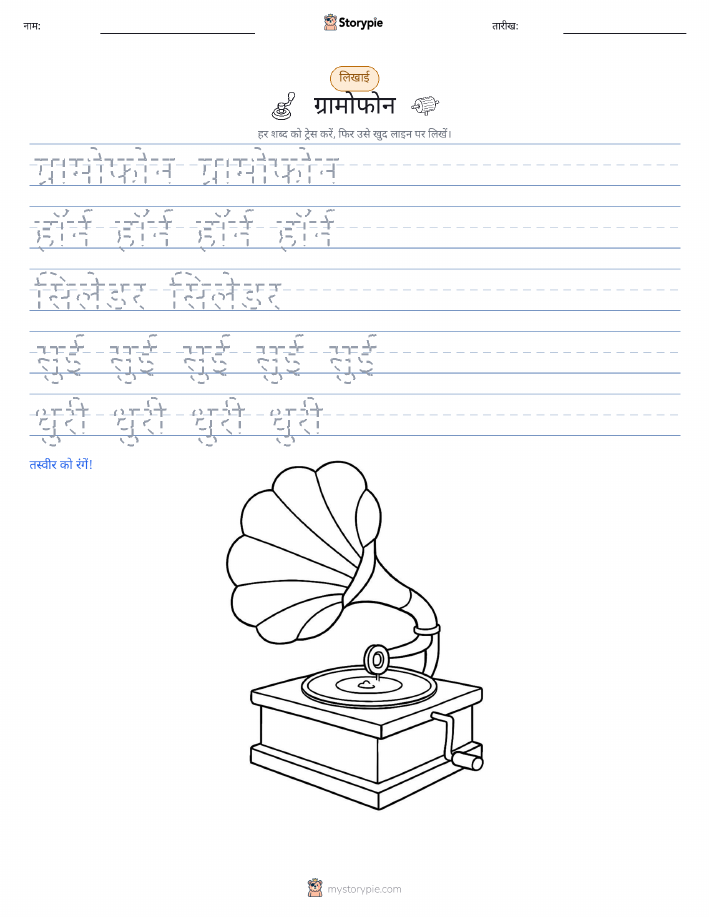 नाम:
Storypie
तारीख:
लिखाई
ग्रामोफोन
हर शब्द को ट्रेस करें, फिर उसे खुद लाइन पर लिखें।
ग्रामोफोन ग्रामोफोन
हॉर्न हॉर्न हॉर्न हॉर्न
सिलेंडर सिलेंडर
सुई सुई सुई सुई सुई
धुरी धुरी धुरी धुरी
तस्वीर को रंगें!
mystorypie.com